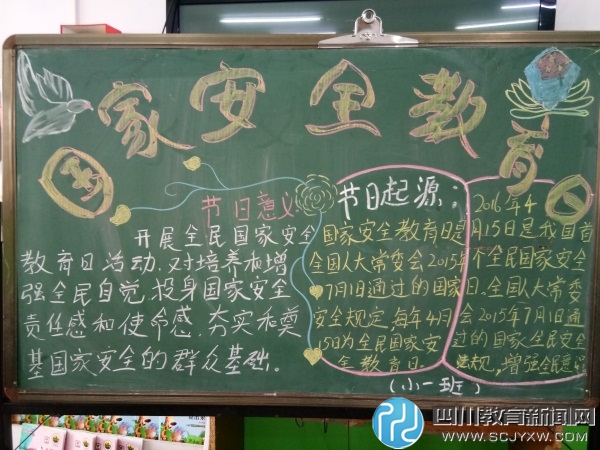 国家安全教育
节日意义
开展全民国家安全
教育日活动.对培养和增
强全民自觉.投身国家安全
责任感和使命感.夯实和奠
基国家安全的群众基础。
节日起源:
国家安全教育日是
全国人大常委会2015年
7月1日通过的国家
安全规定,每年4月
15日为全民国家安
全教育日.
2016年4
月15日是我国首
个全民国家安全
日.全国人大常委
会2015年7月1日通
过的国家全民安全
法规,增强全民意识
(小一班)
四川教育新闻网
WWW.SCJYXW.COM